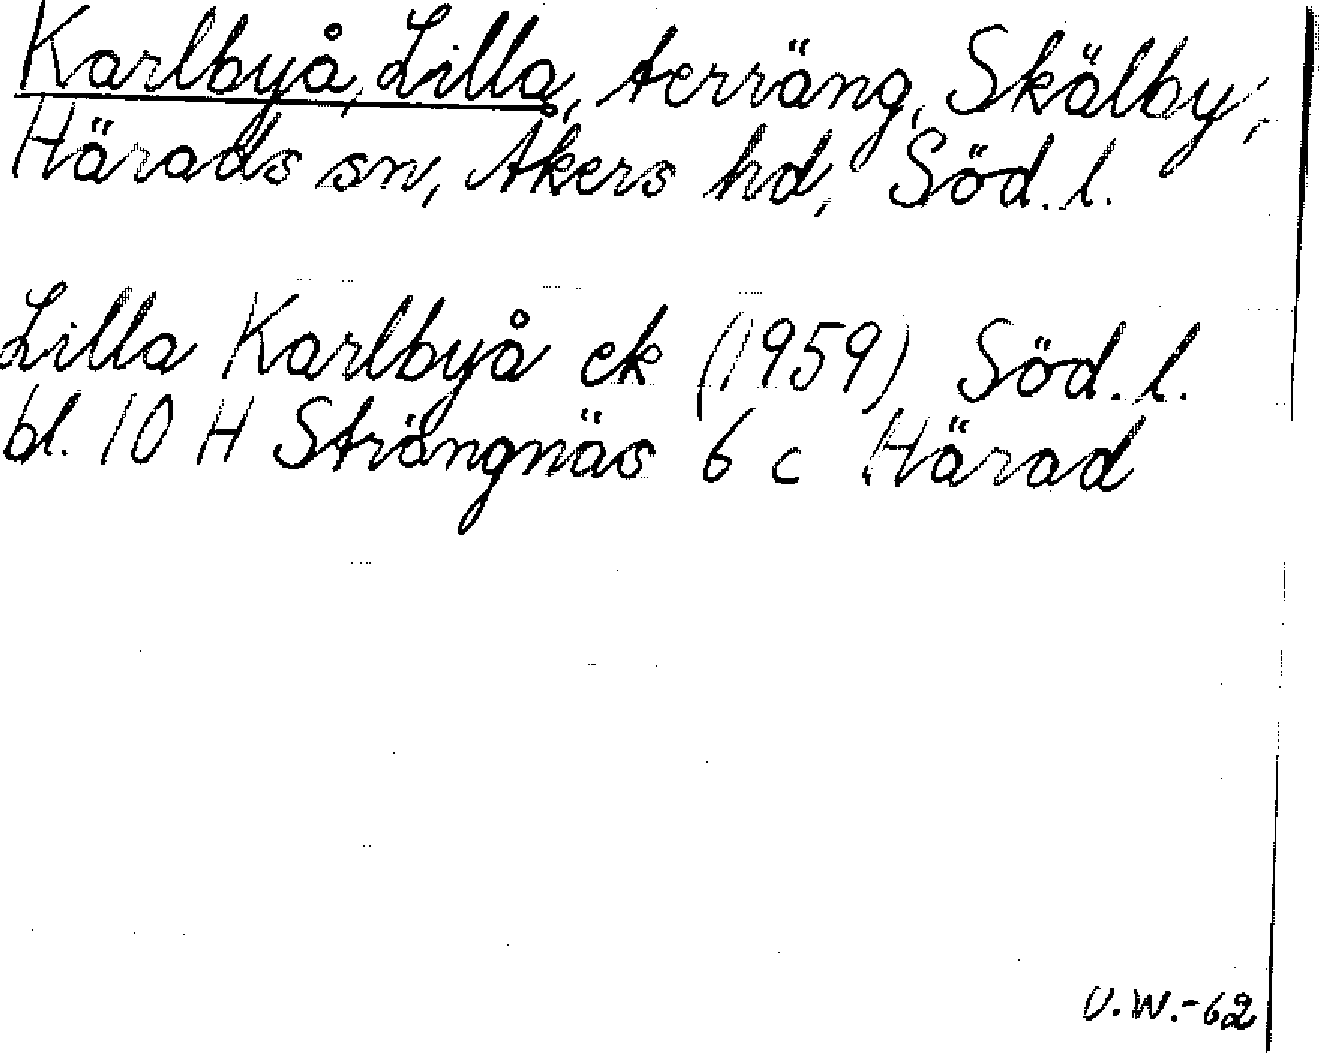 Karlbyå, Lilla, terräng, Skälby,
Härads sn, Åkers hd, Söd. l.
Lilla Karlbyå ek (1959) Söd. l.
bl. 10 H Strängnäs 6 c Härad
U.W.-62